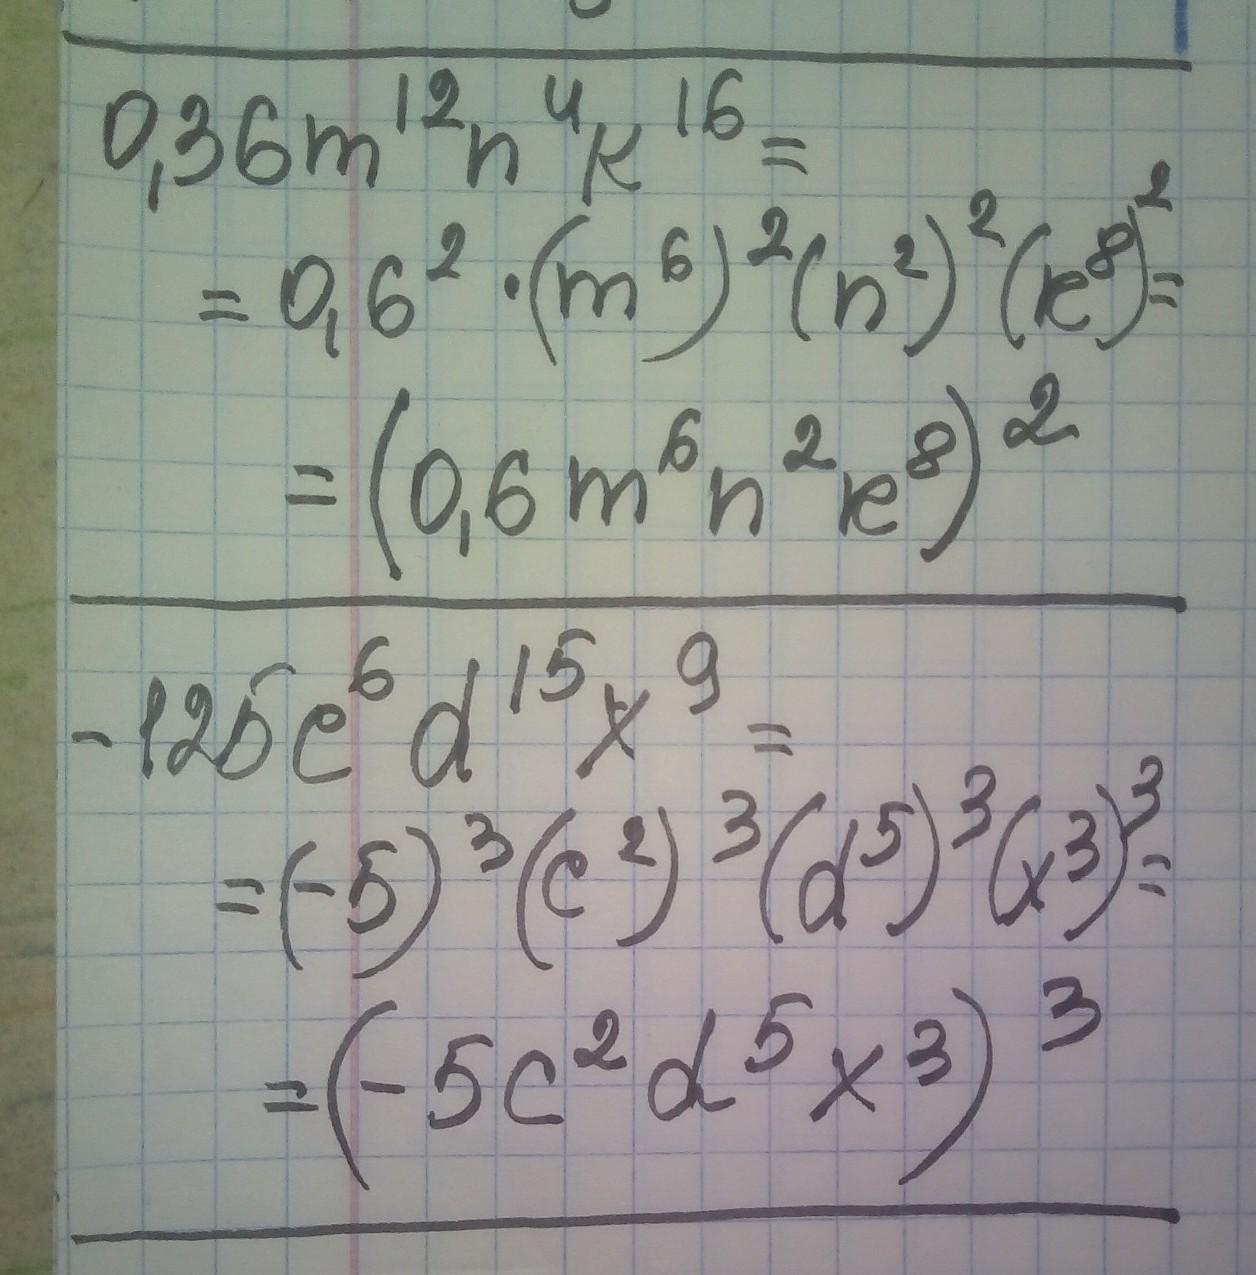 0,36m¹²n⁴k¹⁶=
=0,6²·(m⁶)²(n²)²(k⁸)²=
=(0,6m⁶n²k⁸)²
-125c⁶d¹⁵x⁹=
=(-5)³(c²)³(d⁵)³(x³)³=
=(-5c²d⁵x³)³